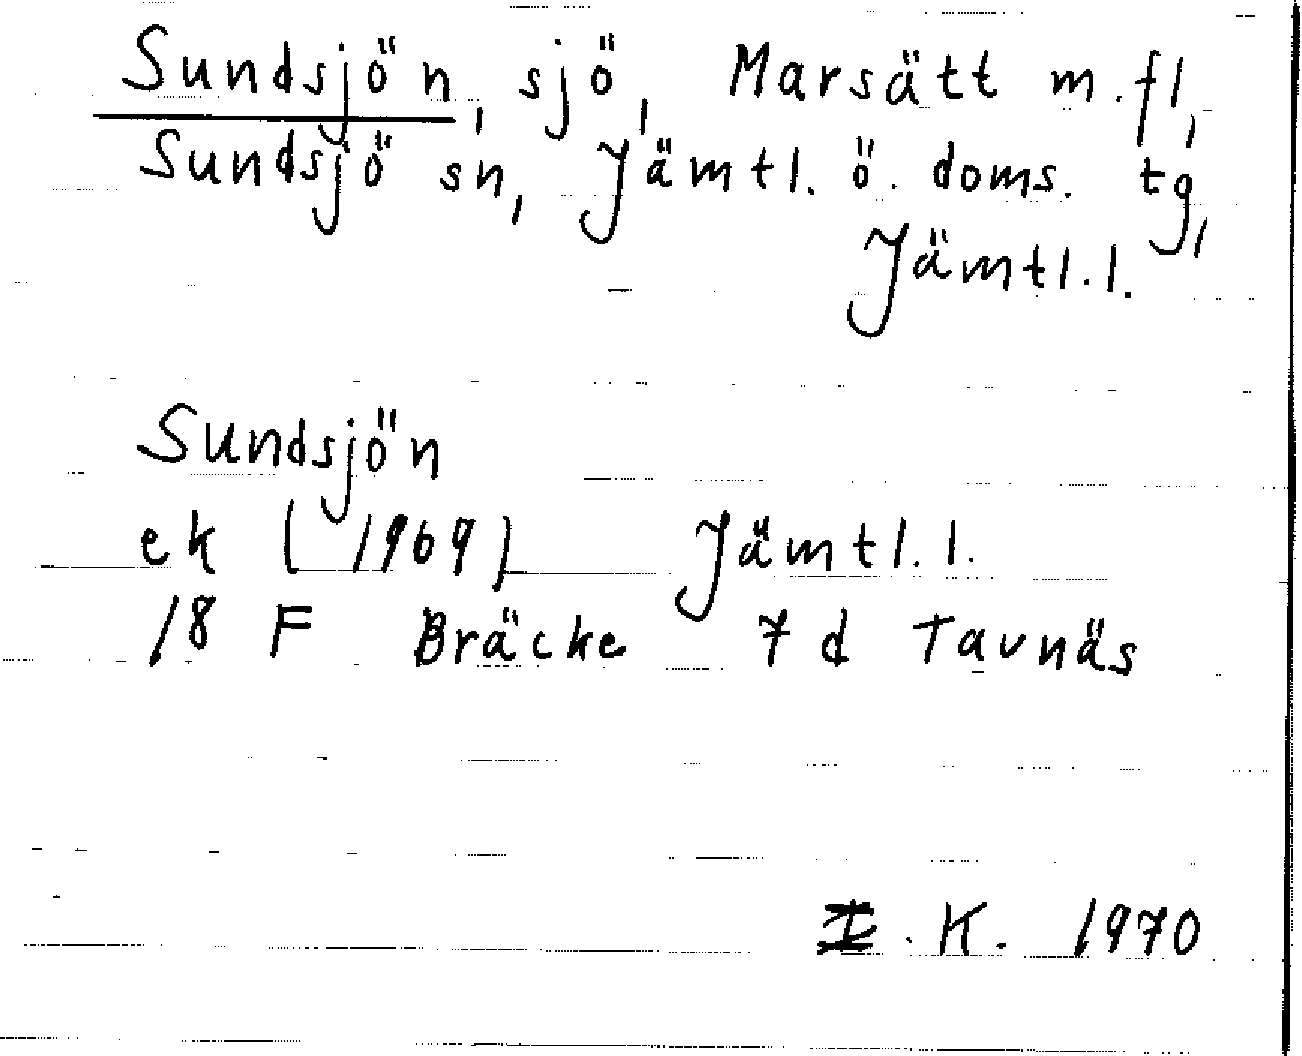 Sundsjön, sjö, Marsätt m.fl,
Sundsjö sn, Jämtl. ö. doms. tg,
Jämtl.l.
Sundsjön
ek (1969) Jämtl.l.
18 F Bräcke 7 d Tavnäs
I.K. 1970